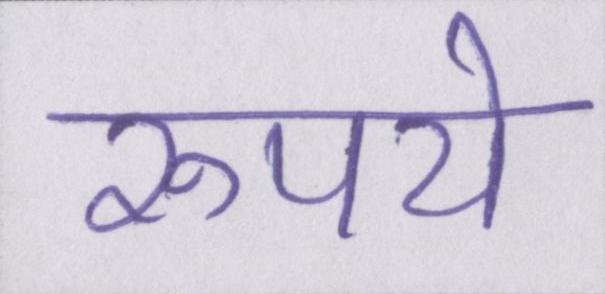 रूपये